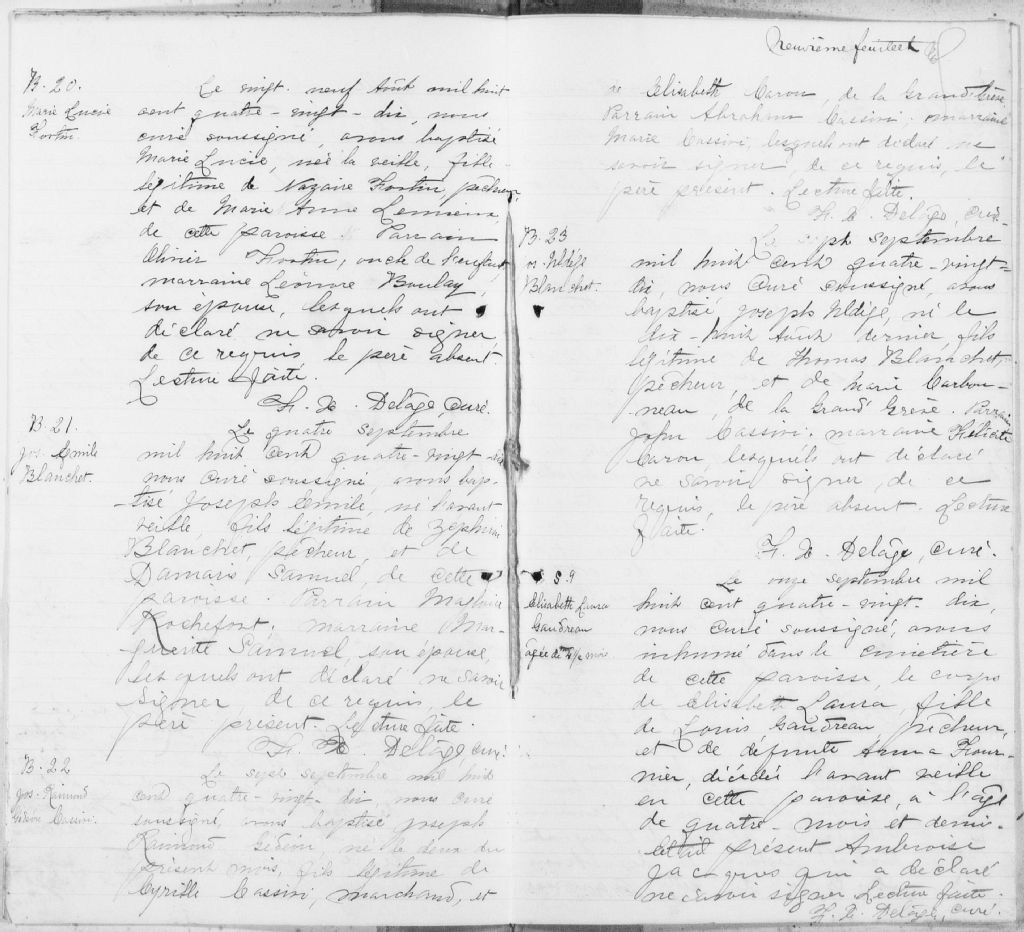 B. 20.
Marie Lucie
Fortin.
Le vingt-neuf Août mil huit
cent quatre-vingt-dix, nous
curé soussigné, avons baptisé
Marie Lucie, née la veille, fille
légitime de Nazaire Fortin, pêcheur
et de Marie Anne Lemieux,
de cette paroisse. Parrain
Olivier Fortin, oncle de l'enfant,
marraine Léonore Boulay,
son épouse, lesquels ont
déclaré ne savoir signer,
de ce requis, le père absent.
Lecture faite.
F. X. Delâge, curé.
B. 21.
Jos. Emile
Blanchet.
Le quatre septembre
mil huit cent quatre-vingt-dix
nous curé soussigné, avons bap-
tisé Joseph Emile, né l'avant
veille, fils légitime de Zéphirin
Blanchet, pêcheur, et de
Damaris Samuel, de cette
paroisse. Parrain Magloire
Rochefort, marraine Mar-
guerite Samuel, son épouse,
lesquels ont déclaré ne savoir
signer, de ce requis, le
père présent. Lecture faite.
F. X. Delâge, curé.
B. 22
Jos. Raimond
Gédéon Cassivi.
Le sept septembre mil huit
cent quatre-vingt-dix, nous curé
soussigné, avons baptisé Joseph
Raimond Gédéon, né le deux du
présent mois, fils légitime de
Cyrille Cassivi, marchand, et
Neuvième feuillet
de Elisabeth Caron, de la Grande Grève
Parrain Abraham Cassivi; marraine
Marie Cassivi, lesquels ont déclaré ne
savoir signer, de ce requis, le
père présent. Lecture faite.
F. X. Delâge, curé
B. 23
Jos. Nldége
Blanchet.
Le sept septembre
mil huit cent quatre-vingt-
dix, nous curé soussigné, avons
baptisé Joseph Nldége, né le
dix-huit Août dernier, fils
légitime de Thomas Blanchet,
pêcheur, et de Marie Carbon-
neau, de la Grand' Grève. Parrain
John Cassivi, marraine Félicité
Caron, lesquels ont déclaré
ne savoir signer, de ce
requis, le père absent. Lecture
faite.
F. X. Delâge, curé.
S. 9
Elisabeth Laura
Gaudreau
agée de 4 1/2 mois
Le onze septembre mil
huit cent quatre-vingt-dix,
nous curé soussigné, avons
inhumé dans le cimetière
de cette paroisse, le corps
de Elisabeth Laura, fille
de Louis Gaudreau pêcheur,
et de défunte Anna Four-
nier, décédée l'avant veille
en cette paroisse, à l'âge
de quatre mois et demi.
présent Ambroise
Jacques qui a déclaré
ne savoir signer. Lecture faite.
F. X. Delâge, curé.